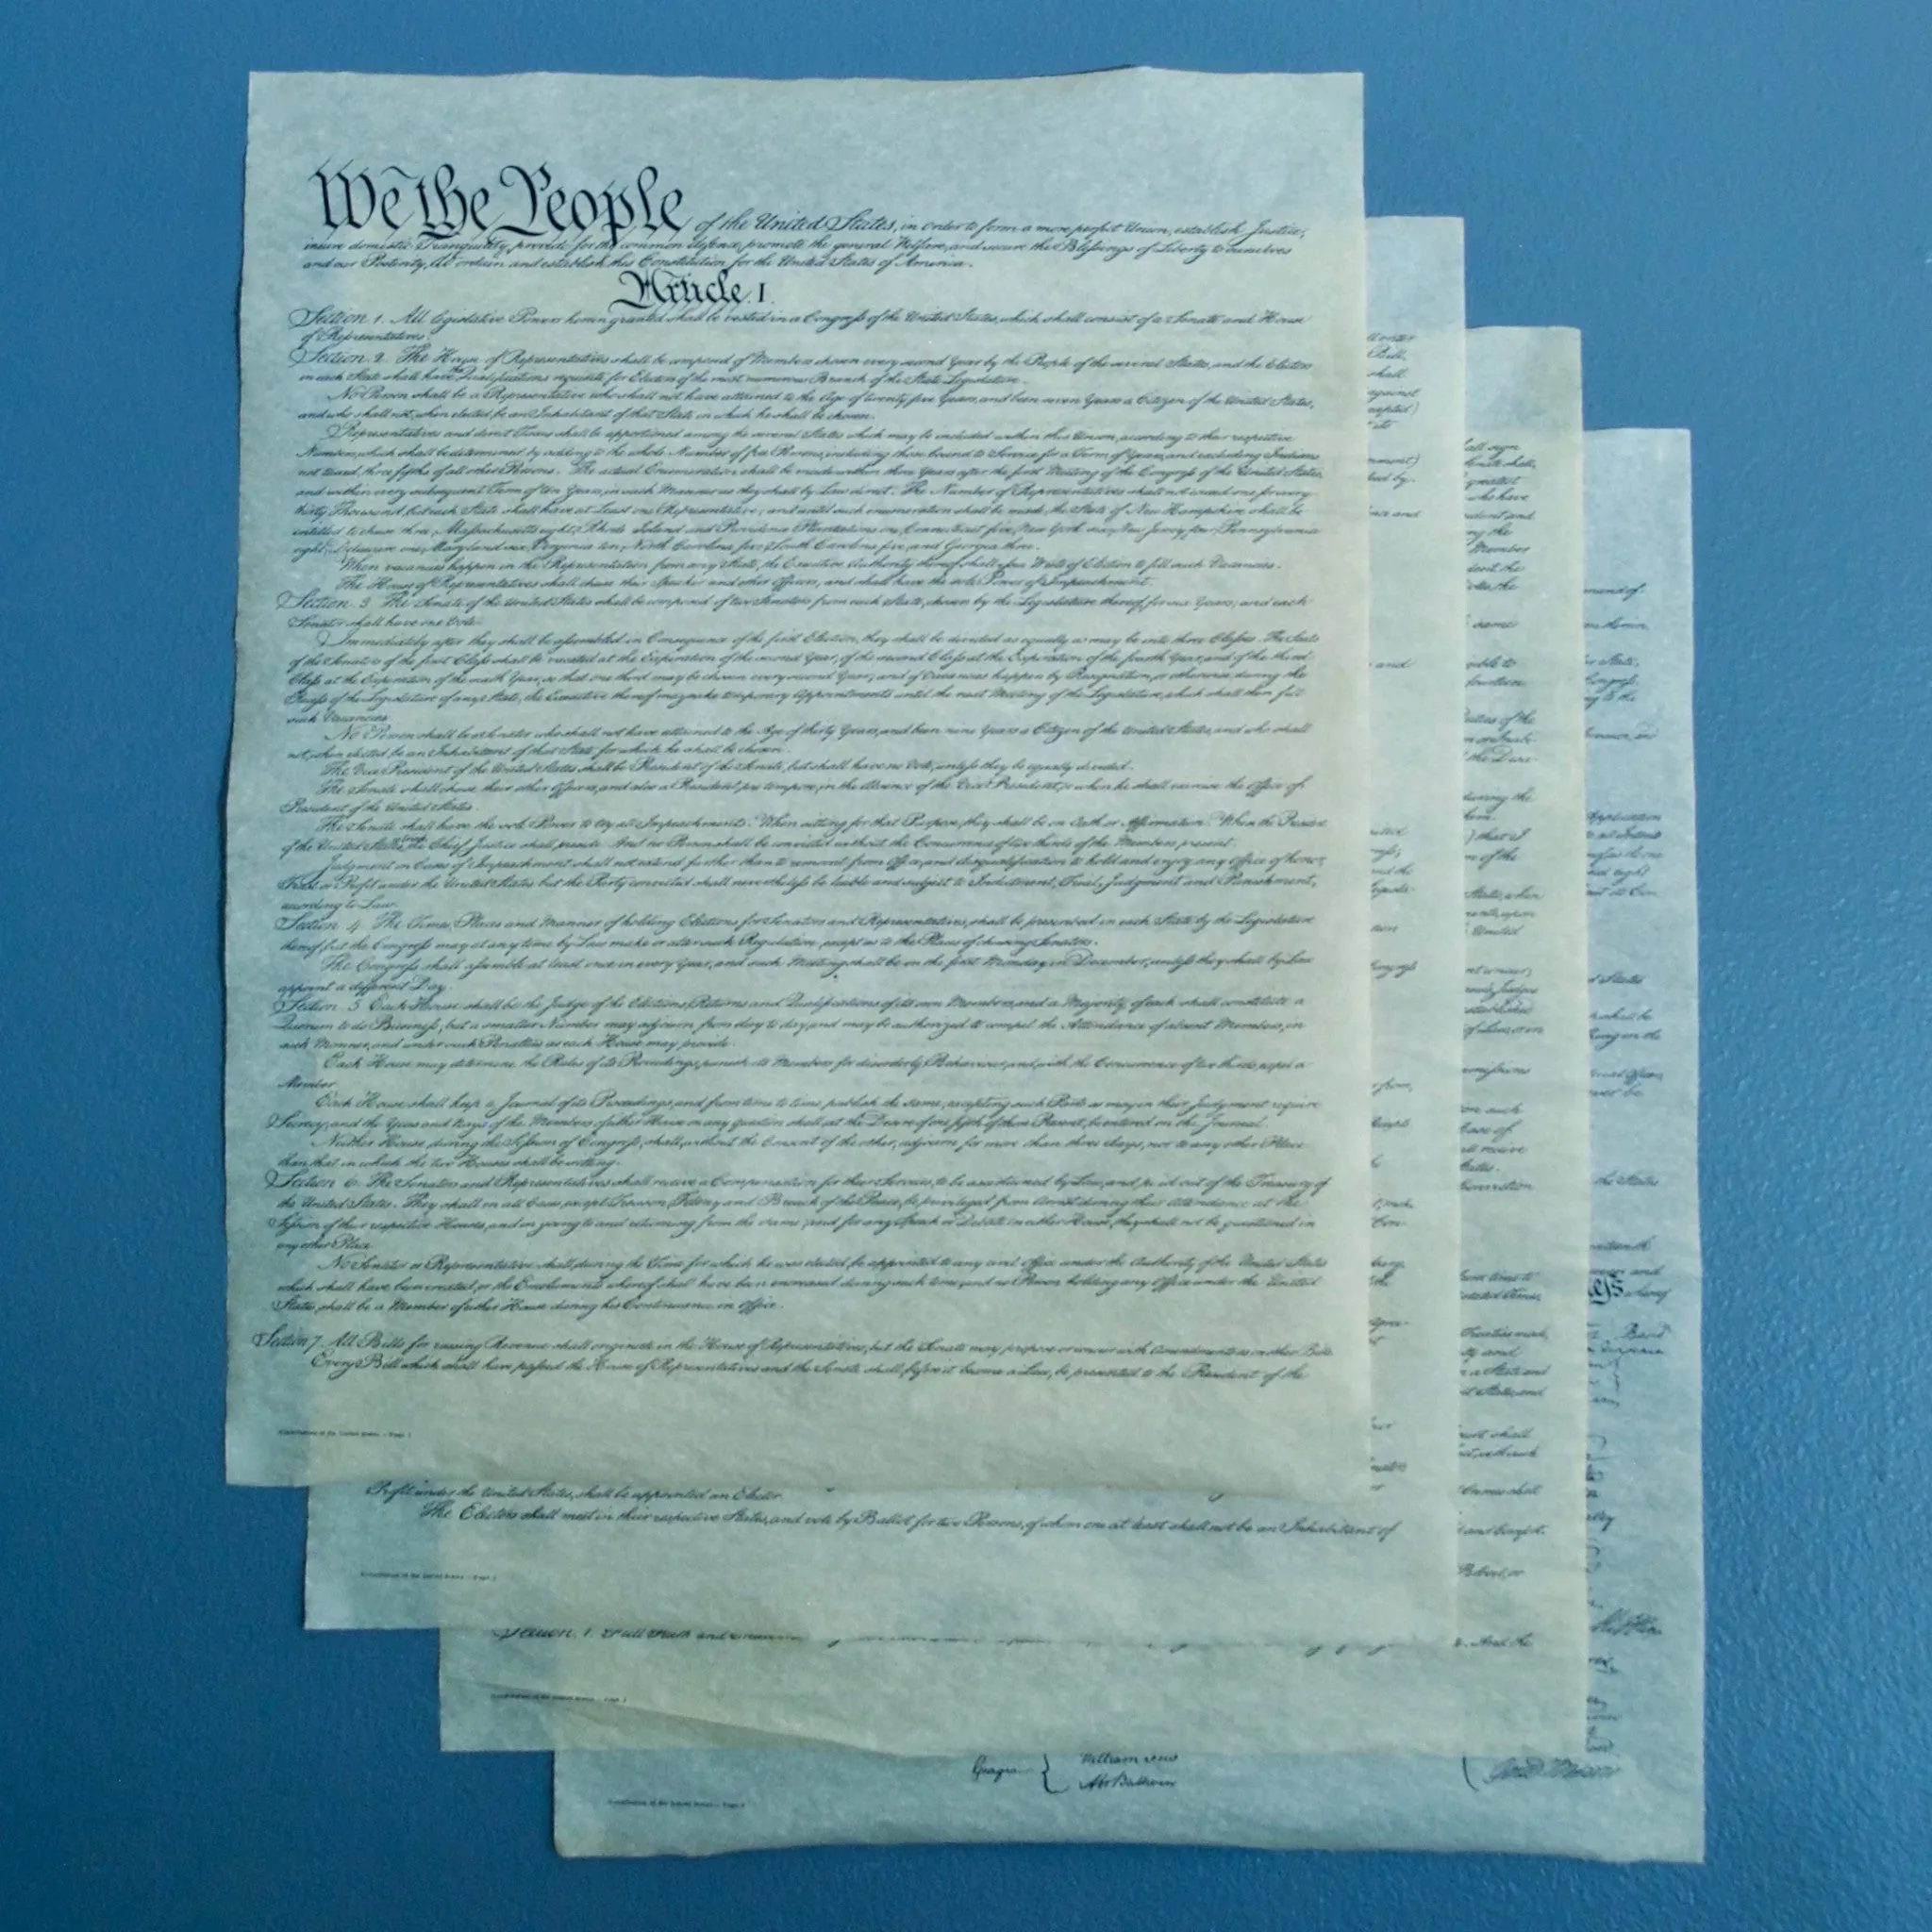 We the People of the United States, in order to form a more perfect Union, establish Justice,
insure domestic Tranquility, provide for the common defence, promote the general Welfare, and secure the Blessings of Liberty to ourselves
and our Posterity, do ordain and establish this Constitution for the United States of America.
Article. I.
Section 1. All legislative Powers herein granted shall be vested in a Congress of the United States, which shall consist of a Senate and House
of Representatives.
Section 2. The House of Representatives shall be composed of Members chosen every second Year by the People of the several States, and the Electors
in each State shall have the Qualifications requisite for Electors of the most numerous Branch of the State Legislature.
No Person shall be a Representative who shall not have attained to the Age of twenty five Years, and been seven Years a Citizen of the United States,
and who shall not, when elected, be an Inhabitant of that State in which he shall be chosen.
Representatives and direct Taxes shall be apportioned among the several States which may be included within this Union, according to their respective
Numbers, which shall be determined by adding to the whole Number of free Persons, including those bound to Service for a Term of Years, and excluding Indians
not taxed, three fifths of all other Persons. The actual Enumeration shall be made within three Years after the first Meeting of the Congress of the United States,
and within every subsequent Term of ten Years, in such Manner as they shall by Law direct. The Number of Representatives shall not exceed one for every
thirty Thousand, but each State shall have at Least one Representative; and until such enumeration shall be made, the State of New Hampshire shall be
entitled to chuse three, Massachusetts eight, Rhode Island and Providence Plantations one, Connecticut five, New York six, New Jersey four, Pennsylvania
eight, Delaware one, Maryland six, Virginia ten, North Carolina five, South Carolina five, and Georgia three.
When vacancies happen in the Representation from any State, the Executive Authority thereof shall issue Writs of Election to fill such Vacancies.
The House of Representatives shall chuse their Speaker and other Officers; and shall have the sole Power of Impeachment.
Section 3. The Senate of the United States shall be composed of two Senators from each State, chosen by the Legislature thereof, for six Years; and each
Senator shall have one Vote.
Immediately after they shall be assembled in Consequence of the first Election, they shall be divided as equally as may be into three Classes. The Seats
of the Senators of the first Class shall be vacated at the Expiration of the second Year, of the second Class at the Expiration of the fourth Year, and of the third
Class at the Expiration of the sixth Year, so that one third may be chosen every second Year; and if Vacancies happen by Resignation, or otherwise, during the
Recess of the Legislature of any State, the Executive thereof may make temporary Appointments until the next Meeting of the Legislature, which shall then fill
such Vacancies.
No Person shall be a Senator who shall not have attained to the Age of thirty Years, and been nine Years a Citizen of the United States, and who shall
not, when elected, be an Inhabitant of that State for which he shall be chosen.
The Vice President of the United States shall be President of the Senate, but shall have no Vote, unless they be equally divided.
The Senate shall chuse their other Officers, and also a President pro tempore, in the Absence of the Vice President, or when he shall exercise the Office of
President of the United States.
The Senate shall have the sole Power to try all Impeachments. When sitting for that Purpose, they shall be on Oath or Affirmation. When the President
of the United States is tried, the Chief Justice shall preside: And no Person shall be convicted without the Concurrence of two thirds of the Members present.
Judgment in Cases of Impeachment shall not extend further than to removal from Office, and disqualification to hold and enjoy any Office of honor,
Trust or Profit under the United States: but the Party convicted shall nevertheless be liable and subject to Indictment, Trial, Judgment and Punishment,
according to Law.
Section 4. The Times, Places and Manner of holding Elections for Senators and Representatives, shall be prescribed in each State by the Legislature
thereof; but the Congress may at any time by Law make or alter such Regulations, except as to the Places of chusing Senators.
The Congress shall assemble at least once in every Year, and such Meeting shall be on the first Monday in December, unless they shall by Law
appoint a different Day.
Section 5. Each House shall be the Judge of the Elections, Returns and Qualifications of its own Members, and a Majority of each shall constitute a
Quorum to do Business; but a smaller Number may adjourn from day to day, and may be authorized to compel the Attendance of absent Members, in
such Manner, and under such Penalties as each House may provide.
Each House may determine the Rules of its Proceedings, punish its Members for disorderly Behaviour, and, with the Concurrence of two thirds, expel a
Member.
Each House shall keep a Journal of its Proceedings, and from time to time publish the same, excepting such Parts as may in their Judgment require
Secrecy; and the Yeas and Nays of the Members of either House on any question shall, at the Desire of one fifth of those Present, be entered on the Journal.
Neither House, during the Session of Congress, shall, without the Consent of the other, adjourn for more than three days, nor to any other Place
than that in which the two Houses shall be sitting.
Section 6. The Senators and Representatives shall receive a Compensation for their Services, to be ascertained by Law, and paid out of the Treasury of
the United States. They shall in all Cases, except Treason, Felony and Breach of the Peace, be privileged from Arrest during their Attendance at the
Session of their respective Houses, and in going to and returning from the same; and for any Speech or Debate in either House, they shall not be questioned in
any other Place.
No Senator or Representative shall, during the Time for which he was elected, be appointed to any civil Office under the Authority of the United States
which shall have been created, or the Emoluments whereof shall have been encreased during such time; and no Person holding any Office under the United
States, shall be a Member of either House during his Continuance in Office.
Section 7. All Bills for raising Revenue shall originate in the House of Representatives; but the Senate may propose or concur with Amendments as on other Bills.
Every Bill which shall have passed the House of Representatives and the Senate, shall, before it become a Law, be presented to the President of the
Constitution of the United States - Page 1
Profit under the United States, shall be appointed an Elector.
The Electors shall meet in their respective States, and vote by Ballot for two Persons, of whom one at least shall not be an Inhabitant of
Constitution of the United States - Page 2
Section. 1. Full Faith and And the
Constitution of the United States - Page 3
Georgia William Few
Abr Baldwin
Constitution of the United States - Page 4